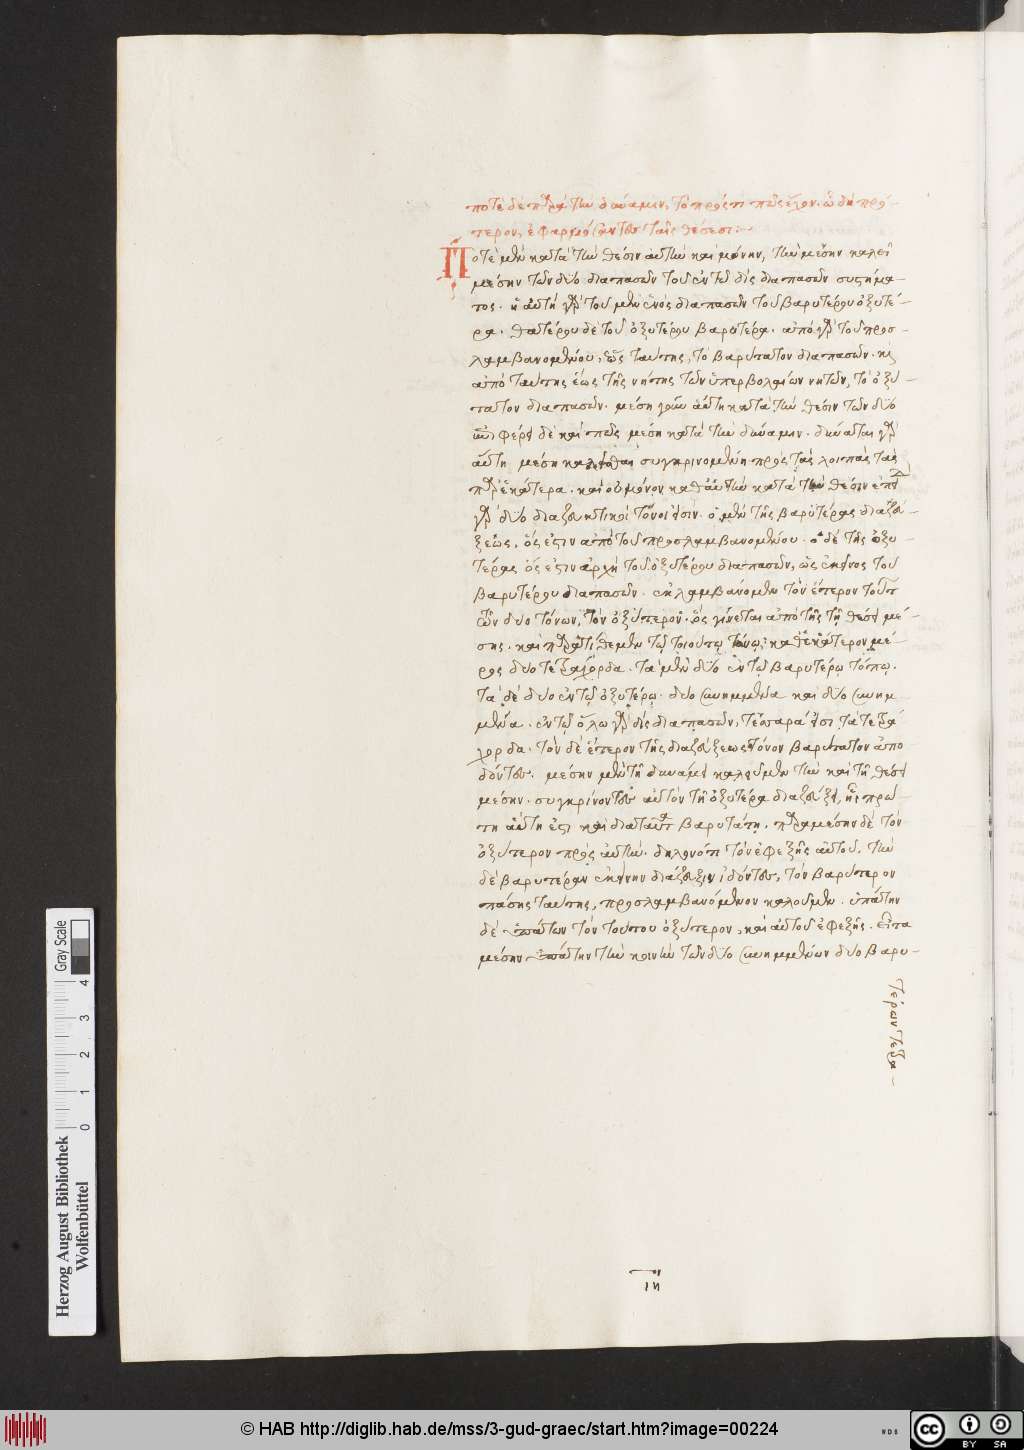 ποτὲ δὲ παρὰ τὴν δύναμιν, τὸ πρός τι πῶς ἔχον. ὧ δὴ πρό-
τερον, ἐφαρμόσαντες ταῖς θέσεσι:-
Ποτὲ μὲν κατὰ τὴν θέσιν αὐτὴν καὶ μόνην, τὴν μέσην καλεῖ
μέσην τῶν δύο διαπασῶν τοῦ ἐν τῶ δὶς διαπασῶν συστήμα-
τος. ἡ αὐτὴ γὰρ τοῦ μὲν ἑνὸς διαπασῶν τοῦ βαρυτέρου ὀξυτέ-
ρα. θατέρου δὲ τοῦ ὀξυτέρου βαρυτέρα. ἀπὸ γὰρ τοῦ προσ-
λαμβανομένου, ἕως ταύτης, τὸ βαρύτατον διαπασῶν. καὶ
ἀπὸ ταύτης ἕως τῆς νήτης τῶν ὑπερβολαίων νητῶν, τὸ ὀξύ-
τατον διαπασῶν. μέση γοῦν αὕτη κατὰ τὴν θέσιν τῶν δύο
φέρει δὲ καὶ πῶς μέση κατὰ τὴν δύναμιν. δύναται γὰρ
αὕτη μέση καλεῖσθαι συγκρινομένη πρὸς τὰς λοιπὰς τὰς
παρ' ἑκάτερα. καὶ οὐ μόνον καθ' αὑτὴν κατὰ τὴν θέσιν ἐπεὶ
γὰρ δύο διαζευκτικοὶ τόνοι εἰσίν. ὁ μὲν τῆς βαρυτέρας διαζεύ-
ξεως, ὅς ἐστιν ἀπὸ τοῦ προσλαμβανομένου. ὁ δὲ τῆς ὀξυ-
τέρας ὅς ἐστιν ἀρχὴ τοῦ ὀξυτέρου διαπασῶν, ὡς ἐκεῖνος τοῦ
βαρυτέρου διαπασῶν. ἐκλαμβάνομεν τὸν ἕτερον τούτ
ων δύο τόνων, τὸν ὀξύτερον. ὃς γίνεται ἀπὸ τῆς τῇ θέσει μέ-
σης. καὶ παρατίθεμεν τῷ τοιούτῳ τόνῳ, καθ' ἑκάτερον μέ-
ρος δύο τετράχορδα. τὰ μὲν δύο ἐν τῷ βαρυτέρῳ τόπῳ.
τὰ δὲ δύο ἐν τῷ ὀξυτέρῳ. δύο συνημμένα καὶ δύο συνημ-
μένα. ἐν τῷ ὅλω γὰρ δὶς διαπασῶν, τέσσαρά εἰσι τὰ τετρά-
χορδα. τὸν δὲ ἕτερον τῆς διαζεύξεως τόνον βαρύτατον ἀπο
δόντες. μέσην μὲν τῇ δυνάμει καλοῦμεν τὴν καὶ τῇ θέσει
μέσην. συγκρίνοντες αὐτὸν τῇ ὀξυτέρα διαζεύξει, ἥτις πρώ-
τη αὕτη ἐστὶ καὶ διὰ ταῦτα βαρυτάτη. παραμέσην δὲ τὸν
ὀξύτερον πρὸς αὐτὴν. δηλονότι τὸν ἐφεξῆς αὐτοῦ. τὴν
δὲ βαρυτέραν ἐκείνην διάζευξιν ἰδόντες, τὸν βαρύτερον
πάσης ταύτης, προσλαμβανόμενον καλοῦμεν. ὑπάτην
δὲ ὑπάτων τὸν τούτου ὀξύτερον, καὶ αὐτοῦ ἐφεξῆς. εἶτα
μέσην ὑπάτην τὴν κοινὴν τῶν δύο συνημμένων δύο βαρυ-
τέρων τετρα-
ιη
Gray Scale
0 1 2 3 4
Herzog August Bibliothek
Wolfenbüttel
© HAB http://diglib.hab.de/mss/3-gud-graec/start.htm?image=00224
WDB
cc BY SA